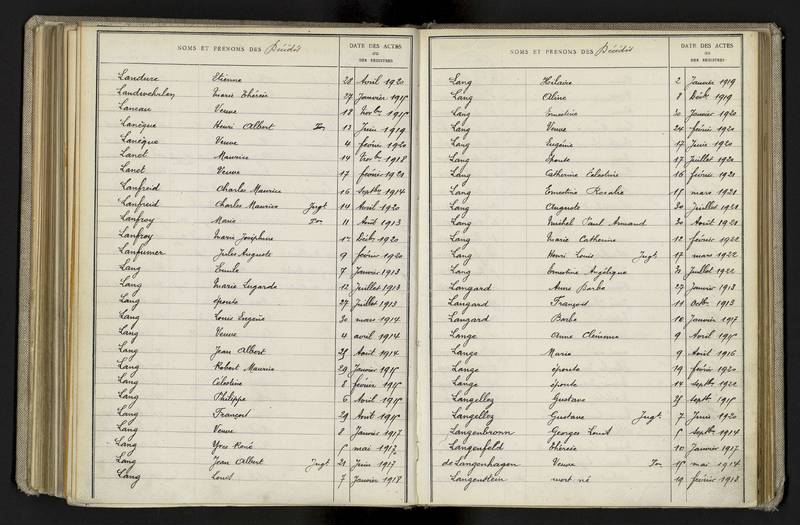 NOMS ET PRÉNOMS DES Décédés
DATE DES ACTES
OU
DES REGISTRES
Landure Etienne 28 Avril 1920
Landwehrlen Marie Thérèse 27 Janvier 1915
Laneau Veuve 18 Novbre 1915
Lanèque Henri Albert Ton 13 Juin 1919
Lanèque Veuve 4 février 1920
Lanet Maurice 14 Novbre 1918
Lanet Veuve 17 février 1920
Lanfreid Charles Maurice 16 Septbre 1914
Lanfreid Charles Maurice Jugt 14 Avril 1920
Lanfroy Marie Ton 11 Août 1913
Lanfroy Marie Joséphine Décbre 1920
Lanfumer Jules Auguste 9 février 1920
Lang Emile 7 Janvier 1913
Lang Marie Lugarde 12 Juillet 1913
Lang épouse 27 Juillet 1913
Lang Louis Eugène 30 mars 1914
Lang Veuve 4 avril 1914
Lang Jean Albert 25 Août 1914
Lang Robert Maurice 29 Janvier 1915
Lang Célestine 8 février 1915
Lang Philippe 6 Avril 1915
Lang François 29 Août 1915
Lang Veuve 8 Janvier 1917
Lang Yves René 5 mai 1917
Lang Jean Albert Jugt 21 Juin 1917
Lang Louis 7 Janvier 1918
NOMS ET PRÉNOMS DES Décédés
DATE DES ACTES
OU
DES REGISTRES
Lang Hilaire 2 Janvier 1919
Lang Aline 8 Décbre 1919
Lang Ernestine 20 Janvier 1920
Lang Veuve 24 février 1920
Lang Eugénie 17 Juin 1920
Lang épouse 17 Juillet 1920
Lang Catherine Célestine 16 février 1921
Lang Ernestine Rosalie 15 mars 1921
Lang Auguste 30 Juillet 1921
Lang Michel Paul Armand 30 Août 1921
Lang Marie Catherine 12 février 1922
Lang Henri Louis Jugt 17 mars 1922
Lang Ernestine Angélique 21 Juillet 1922
Langard Anne Barbe 27 Janvier 1913
Langard François 11 Octbre 1913
Langard Barbe 16 Janvier 1917
Lange Anne Clémence 9 Avril 1915
Lange Marie 9 Août 1916
Lange épouse 19 février 1920
Lange épouse 14 Septbre 1922
Langellez Gustave 25 Septbre 1915
Langellez Gustave Jugt 7 Juin 1920
Langenbronn Georges Louis 5 Septbre 1914
Langenfeld Thérèse 10 Janvier 1917
de Langenhagen Veuve Ton 15 mai 1914
Langenstein mort né 19 février 1913